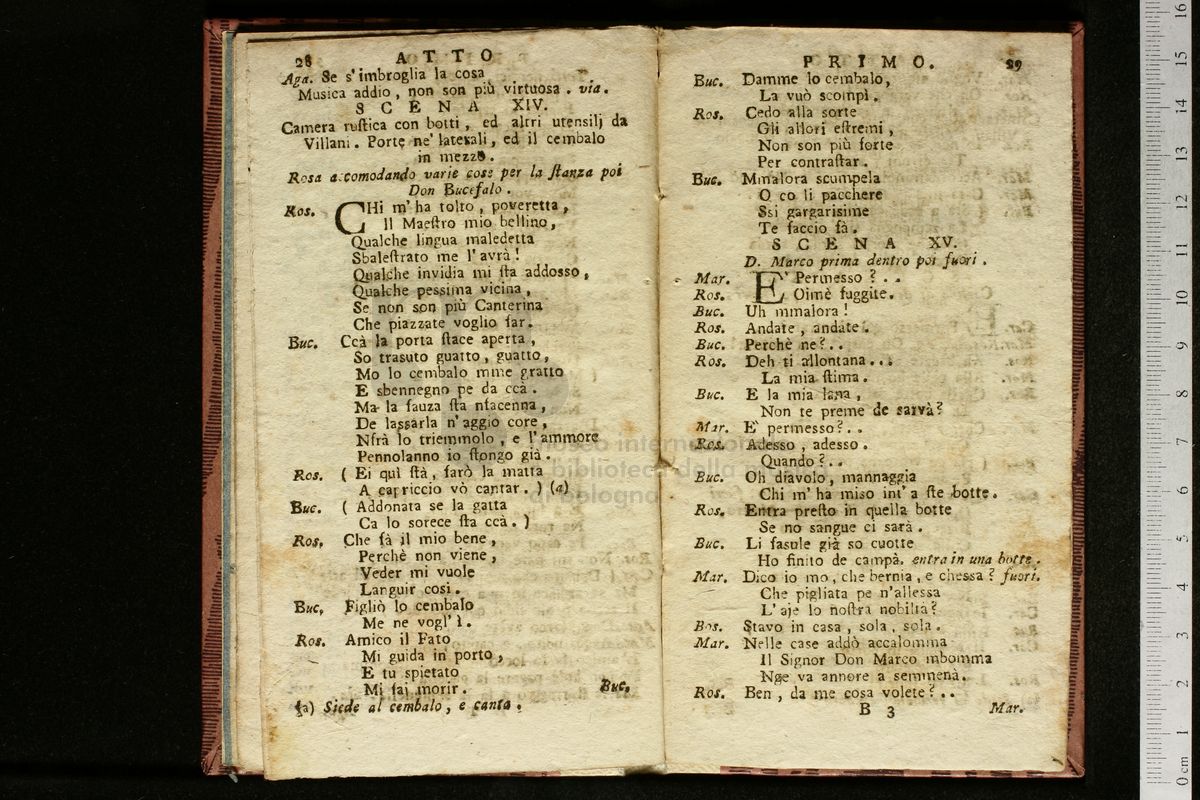 28 ATTO
Aga. Se s'imbroglia la cosa
Musica addio, non son più virtuosa. via.
SCENA XIV.
Camera ruſtica con botti, ed altri utensilj da
Villani. Porte ne' laterali, ed il cembalo
in mezzo.
Rosa accomodando varie cose per la ſtanza poi
Don Bucefalo.
Ros. CHi m'ha tolto, poveretta,
Il Maeſtro mio bellino,
Qualche lingua maledetta
Sbaleſtrato me l'avrà!
Qualche invidia mi ſta addosso,
Qualche pessima vicina,
Se non son più Canterina
Che piazzate voglio far.
Buc. Ccà la porta ſtace aperta,
So trasuto guatto, guatto,
Mo lo cembalo mme gratto
E sbennegno pe da ccà.
Ma la fauza ſta nfacenna,
De lassarla n'aggio core,
Nfrà lo triemmolo, e l'ammore
Pennolanno io ſtongo già.
Ros. ( Ei quì ſtà, farò la matta
A capriccio vò cantar. ) (a)
Buc. ( Addonata se la gatta
Ca lo sorece ſta ccà. )
Ros. Che fà il mio bene,
Perchè non viene,
Veder mi vuole
Languir così.
Buc. Figliò lo cembalo
Me ne vogl' ì.
Ros. Amico il Fato
Mi guida in porto,
E tu spietato
Mi fai morir.
Buc.
(a) Siede al cembalo, e canta.
PRIMO. 29
Buc. Damme lo cembalo,
La vuò scompì.
Ros. Cedo alla sorte
Gli allori eſtremi,
Non son più forte
Per contraſtar.
Buc. Mmalora scumpela
O co li pacchere
Ssi gargarisime
Te faccio fà.
SCENA XV.
D. Marco prima dentro poi fuori.
Mar. E' Permesso?..
Ros. Oimè fuggite.
Buc. Uh mmalora!
Ros. Andate, andate.
Buc. Perchè ne?..
Ros. Deh ti allontana...
La mia ſtima.
Buc. E la mia lana,
Non te preme de sarvà?
Mar. E' permesso?..
Ros. Adesso, adesso.
Quando?..
Buc. Oh diavolo, mannaggia
Chi m'ha miso int'a ſte botte.
Ros. Entra preſto in quella botte
Se no sangue ci sarà.
Buc. Li fasule già so cuotte
Ho finito de campà. entra in una botte.
Mar. Dico io mo, che bernia, e chessa? fuori.
Che pigliata pe n'allessa
L'aje lo noſtra nobiltà?
Ros. Stavo in casa, sola, sola.
Mar. Nelle case addò accalomma
Il Signor Don Marco mbomma
Nge va annore a semmena.
Ros. Ben, da me cosa volete?..
B 3 Mar.
museo internazionale
biblioteca della musica
di bologna
0 cm 1 2 3 4 5 6 7 8 9 10 11 12 13 14 15 16